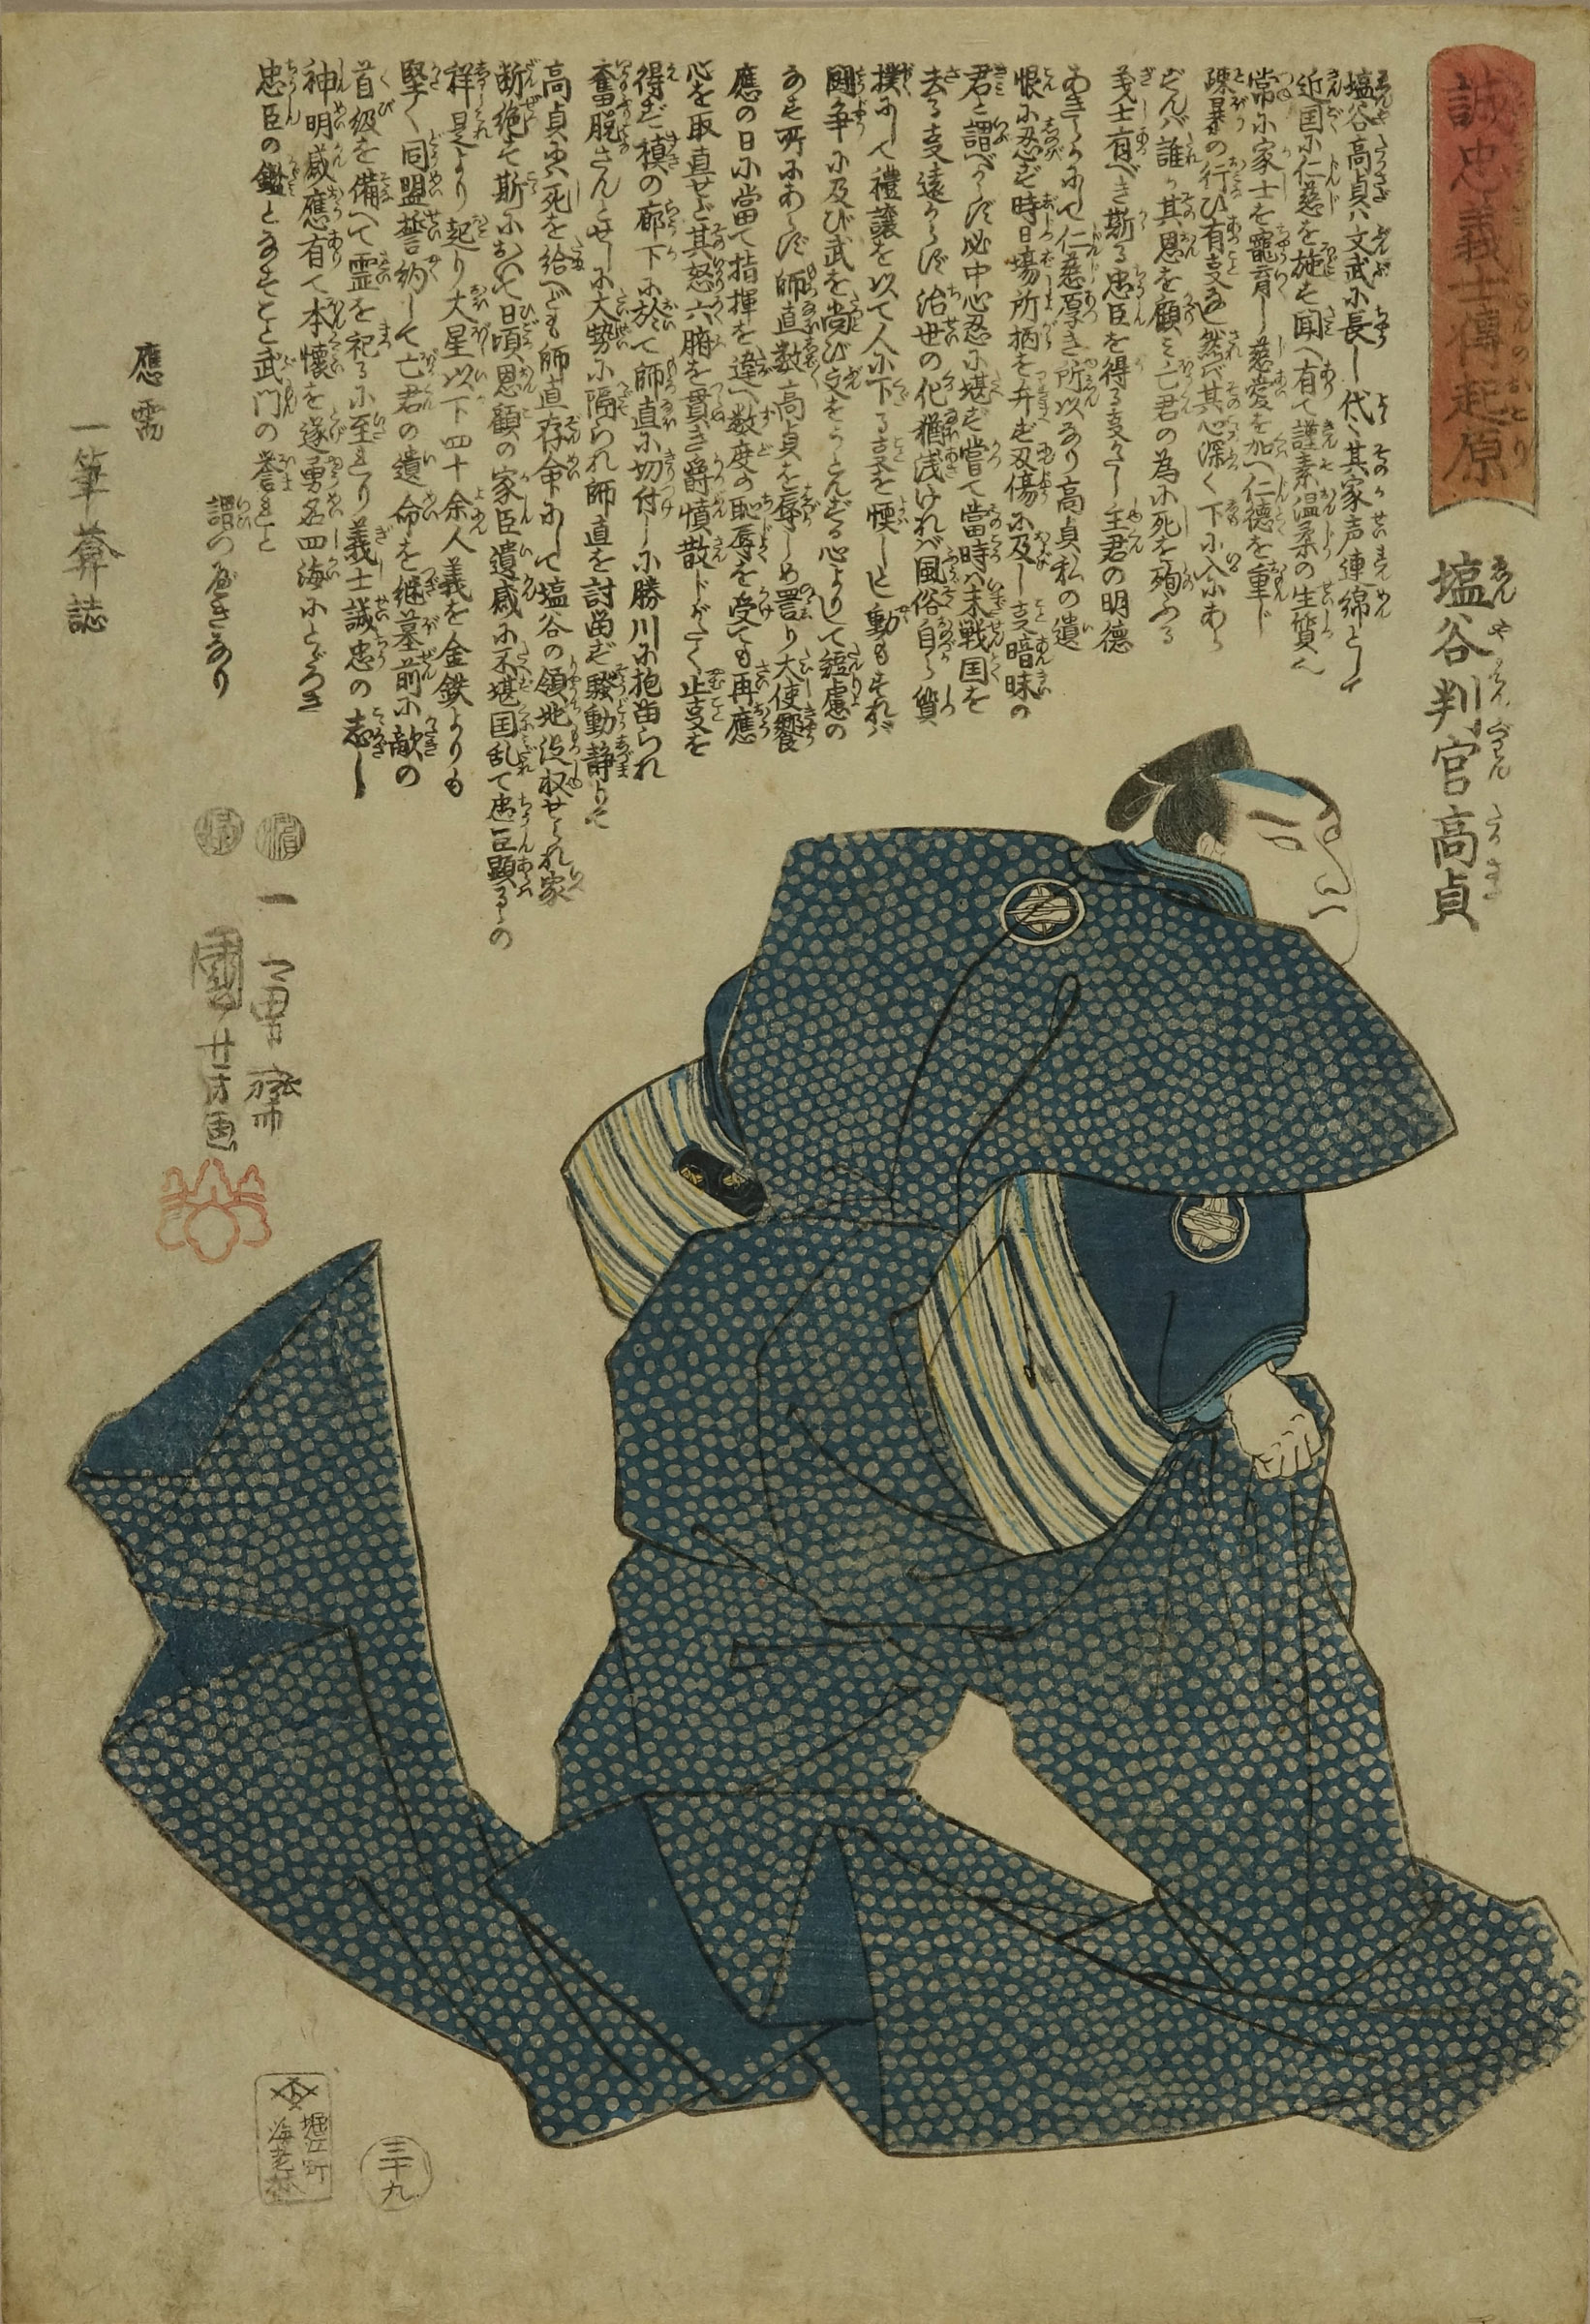 誠忠義士傳起原
塩谷判官高貞
塩谷高貞ハ文武に長し代々其家声連綿として
近国に仁慈を施を聞へ有て謹素温柔の生質
常に家士を寵育し慈愛を加へ仁徳を重じ
疎暴の行ひ有支な然バ其心深く下に
誰か其恩を顧ミ亡君の為に死を殉ふる
義士有べき斯る忠臣を得る支全し主君の明徳
あきらかにして仁慈厚き所以なり高貞私の遺
恨に忍ず時日場所柄を弁ず刃傷に及し支暗昧の
君と謂べからず必中心忍に堪ず嘗て當時ハ末戦国を
去る支遠からず治世の化猶浅ければ風俗自ら質
撲にして禮譲を以て人に下る支を慳しと動もすれバ
闘争に及び武を尚び文をうとんずる心よりして短慮の
なす所にあらず師直数高貞を辱しめ詈り大使饗
應の日に當て指揮を違へ数度の恥辱を受ても再應
心を取直せど其怒六腑を貫き爵憤散じがたく止支を
得ず槙の廊下に於て師直に切付しに勝川に抱留られ
奮脱さんとせしに大勢に隔られ師直を討留ず騒動静りて
高貞に死を給へども師直存命にして塩谷の領地没収せられ家
断絶す斯において日頃恩顧の家臣遺感に不堪国乱て忠臣顕るゝの
祥是より起り大星以下四十余人義を金鉄よりも
堅く同盟誓納して亡君の遺命を継墓前に敵の
首級を備へて霊を祀るに至れり義士誠忠の志し
神明感應有て本懐を遂勇名四海にとゞろき
忠臣の鑑となすこと武門の誉れと
謂つべきなり
應需
一筆葊誌
一勇齋
國芳画
堀江町
海老林
三十九